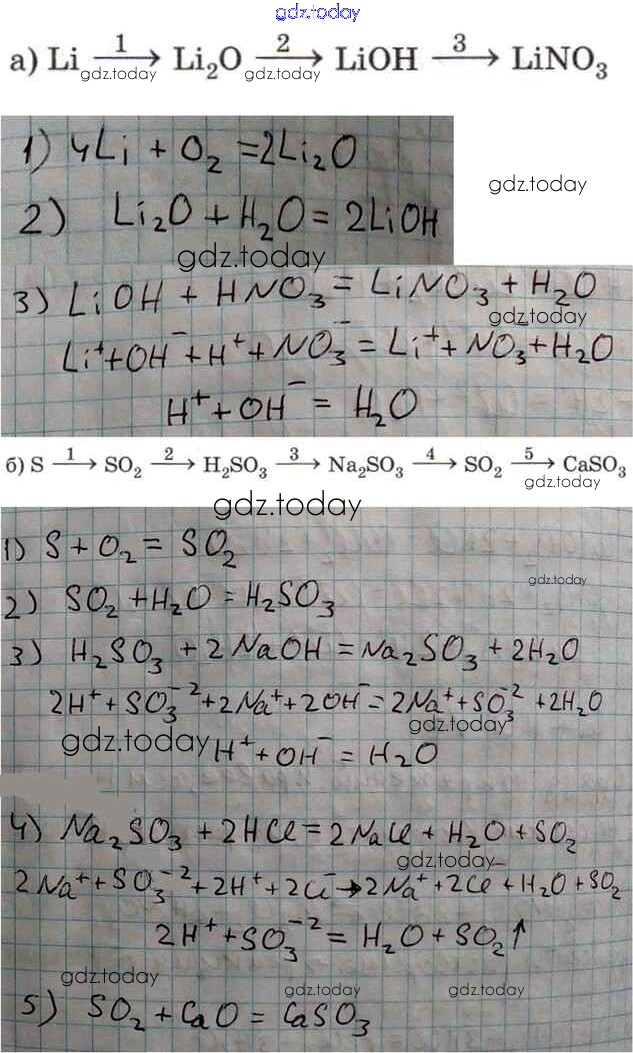 gdz.today
а) Li 1→ Li₂O 2→ LiOH 3→ LiNO₃
gdz.today gdz.today
1) 4Li + O₂ = 2Li₂O
gdz.today
2) Li₂O + H₂O = 2LiOH
gdz.today
3) LiOH + HNO₃ = LiNO₃ + H₂O
gdz.today
Li⁺ + OH⁻ + H⁺ + NO₃⁻ = Li⁺ + NO₃ + H₂O
H⁺ + OH⁻ = H₂O
б) S 1→ SO₂ 2→ H₂SO₃ 3→ Na₂SO₃ 4→ SO₂ 5→ CaSO₃
gdz.today
gdz.today
1) S + O₂ = SO₂
gdz.today
2) SO₂ + H₂O = H₂SO₃
3) H₂SO₃ + 2NaOH = Na₂SO₃ + 2H₂O
2H⁺ + SO₃⁻² + 2Na⁺ + 2OH⁻ = 2Na⁺ + SO₃⁻² + 2H₂O
gdz.today
gdz.today
H⁺ + OH⁻ = H₂O
4) Na₂SO₃ + 2HCl = 2NaCl + H₂O + SO₂
gdz.today
2Na⁺ + SO₃⁻² + 2H⁺ + 2Cl⁻ → 2Na⁺ + 2Cl⁻ + H₂O + SO₂
2H⁺ + SO₃⁻² = H₂O + SO₂↑
gdz.today
gdz.today gdz.today
5) SO₂ + CaO = CaSO₃